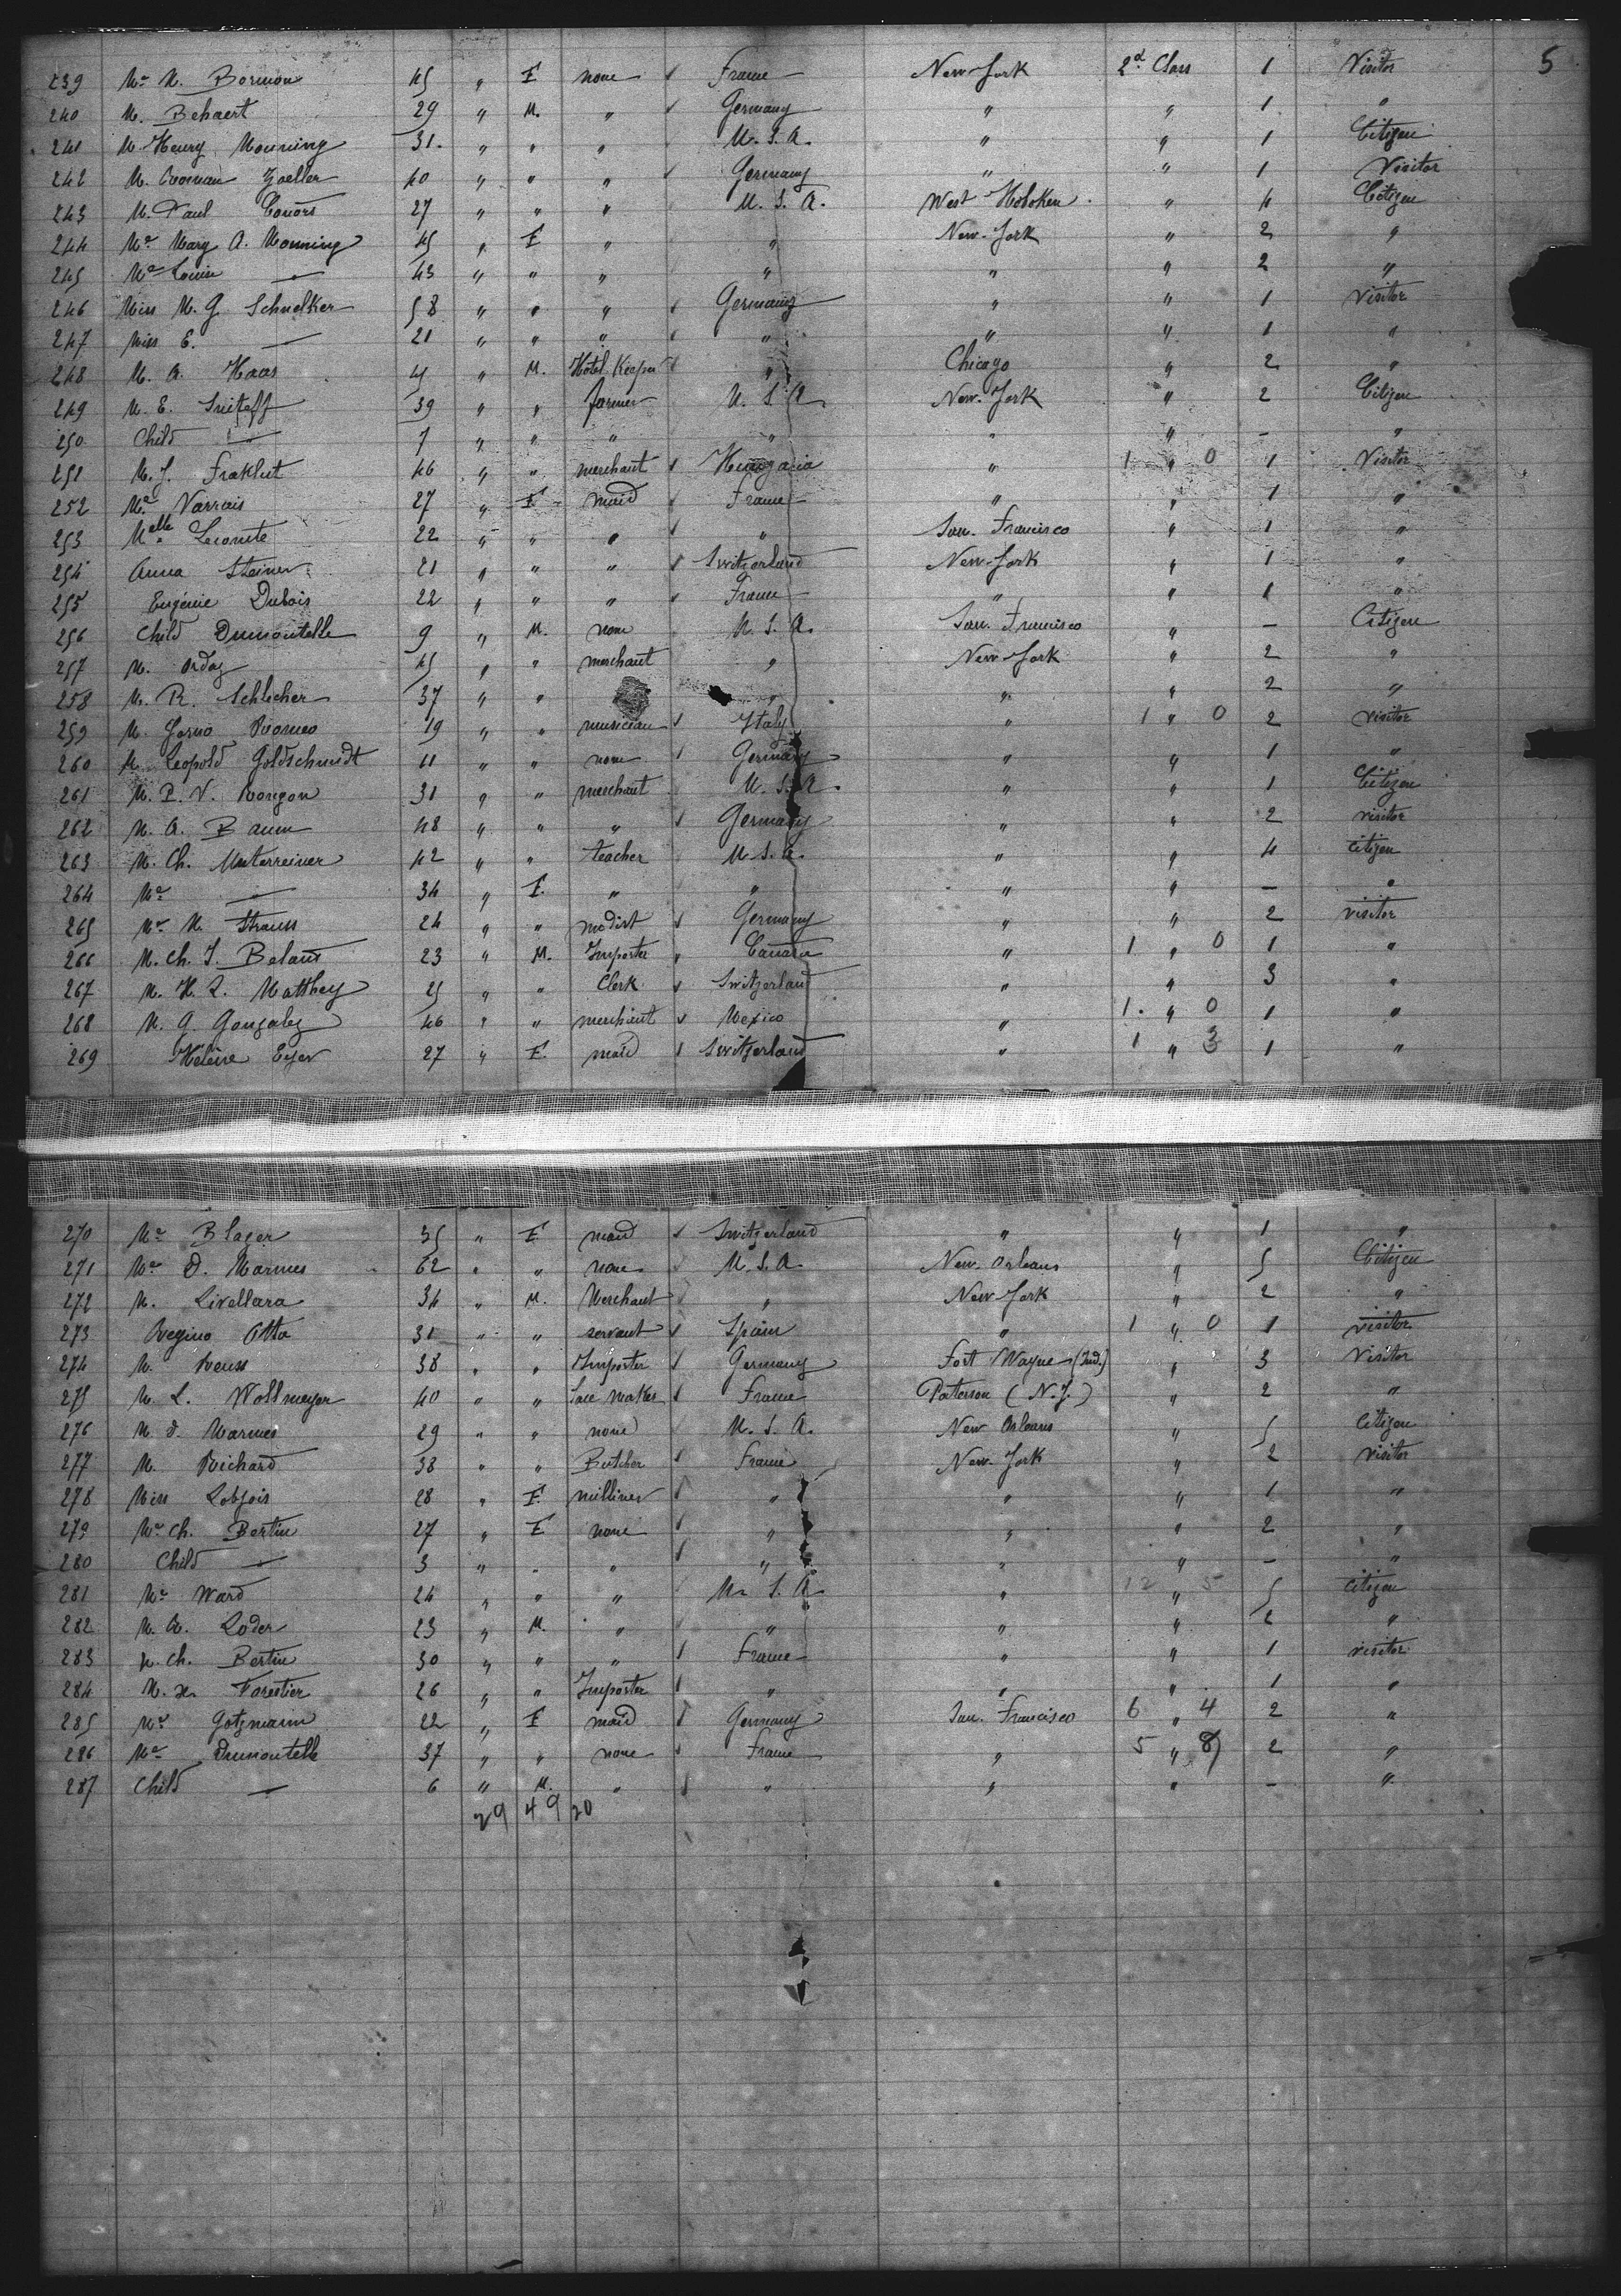 5
239 Me N. Bormon 45 " F none ✓ France New-York 2d Class 1 Visitor
240 M. Behaert 29 " M. " ✓ Germany " " 1 "
241 M. Henry Monning 31. " " " U. S. A. " " 1 Citizen
242 M. Roman Zoeller 40 " " " ✓ Germany " " 1 Visitor
243 M. Paul Conors 27 " " " U. S. A. West Hoboken " 4 Citizen
244 Me Mary A. Monning 45 " F " " New-York " 2 "
245 Me Louise — 43 " " " " " " 2 "
246 Miss M. G. Schnelker 58 " " " ✓ Germany " " 1 Visitor
247 Miss E. — 21 " " " ✓ " " " 1 "
248 M. A. Haas " M. Hotel Keeper ✓ " Chicago " 2 "
249 M. E. 39 " " farmer U. S. A New-York " 2 Citizen
250 Child — 7 " " " " " " — "
251 M. J. Fraklut 46 " " merchant ✓ Hungaria " 1 " 0 1 Visitor
252 Me Varrais 27 " F maid ✓ France " " 1 "
253 Melle Lecomte 22 " " " ✓ " San. Francisco " 1 "
254 Anna Steiner 21 " " " ✓ Switzerland New-York " 1 "
255 Eugénie Dubois 22 " " " ✓ France " " 1 "
256 Child Dumoutelle 9 " M. none U. S. A. San. Francisco " — Citizen
257 M. Ordaz 45 " " merchant " New-York " 2 "
258 M. R. Schlicher 37 " " " " " 2 "
259 M. Romeo 19 " " musician ✓ Italy " 1 " 0 2 visitor
260 M. Leopold Goldschmidt 11 " " none ✓ Germany " " 1 "
261 M. P. V. Rongon 31 " " merchant U. S. A. " " 1 Citizen
262 M. A. Baum 48 " " " ✓ Germany " " 2 visitor
263 M. Ch. Unterreiner 42 " " teacher U. S. A. " " 4 citizen
264 Me — 34 " F. " " " " — "
265 Me N. Strauss 24 " " modist ✓ Germany " " 2 visitor
266 M. Ch. J. Beland 23 " M. Importer " Canada " 1 " 0 1 "
267 M. H. L. Matthey 25 " " Clerk ✓ Switzerland " " 3 "
268 M. G. Gonzalez 46 " " merchant ✓ Mexico " 1. " 0 1 "
269 Hélène Eyer 27 " F. maid ✓ Switzerland " 1 " 3 1 "
270 Me Blaser 35 " F maid ✓ Switzerland " " 1 "
271 Me D. Marmes 62 " " none U. S. A New. Orleans " 5 Citizen
272 M. Livellara 34 " M. Merchant " New-York " 2 "
273 Regino Otto 31 " " servant ✓ Spain " 1 " 0 1 visitor
274 M. Reuss 38 " " Importer ✓ Germany Fort Wayne (Ind.) " 3 Visitor
275 M. L. Wollmeyer 40 " " maker ✓ France Paterson (N. J.) " 2 "
276 M. D. Marmes 29 " " none U. S. A. New Orleans " 5 Citizen
277 M. Richard 38 " " Butcher ✓ France New-York " 2 visitor
278 Miss Lobjois 28 " F. milliner ✓ " " " 1 "
279 Me Ch. Bertin 27 " F none ✓ " " " 2 "
280 Child — 3 " " " ✓ " " " — "
281 Me Ward 24 " " " U. S. A. " 12 " 5 5 citizen
282 M. A. Loder 23 " M. " " " " 2 "
283 M. Ch. Bertin 30 " " " ✓ France " " 1 visitor
284 M. Forestier 26 " " Importer ✓ " " " 1 "
285 Me Gotzmann 22 " F maid ✓ Germany San. Francisco 6 " 4 2 "
286 Me Dumoutelle 37 " " none ✓ France " 5 " 8 2 "
287 Child — 6 " M. " ✓ " " " — "
29 49 20